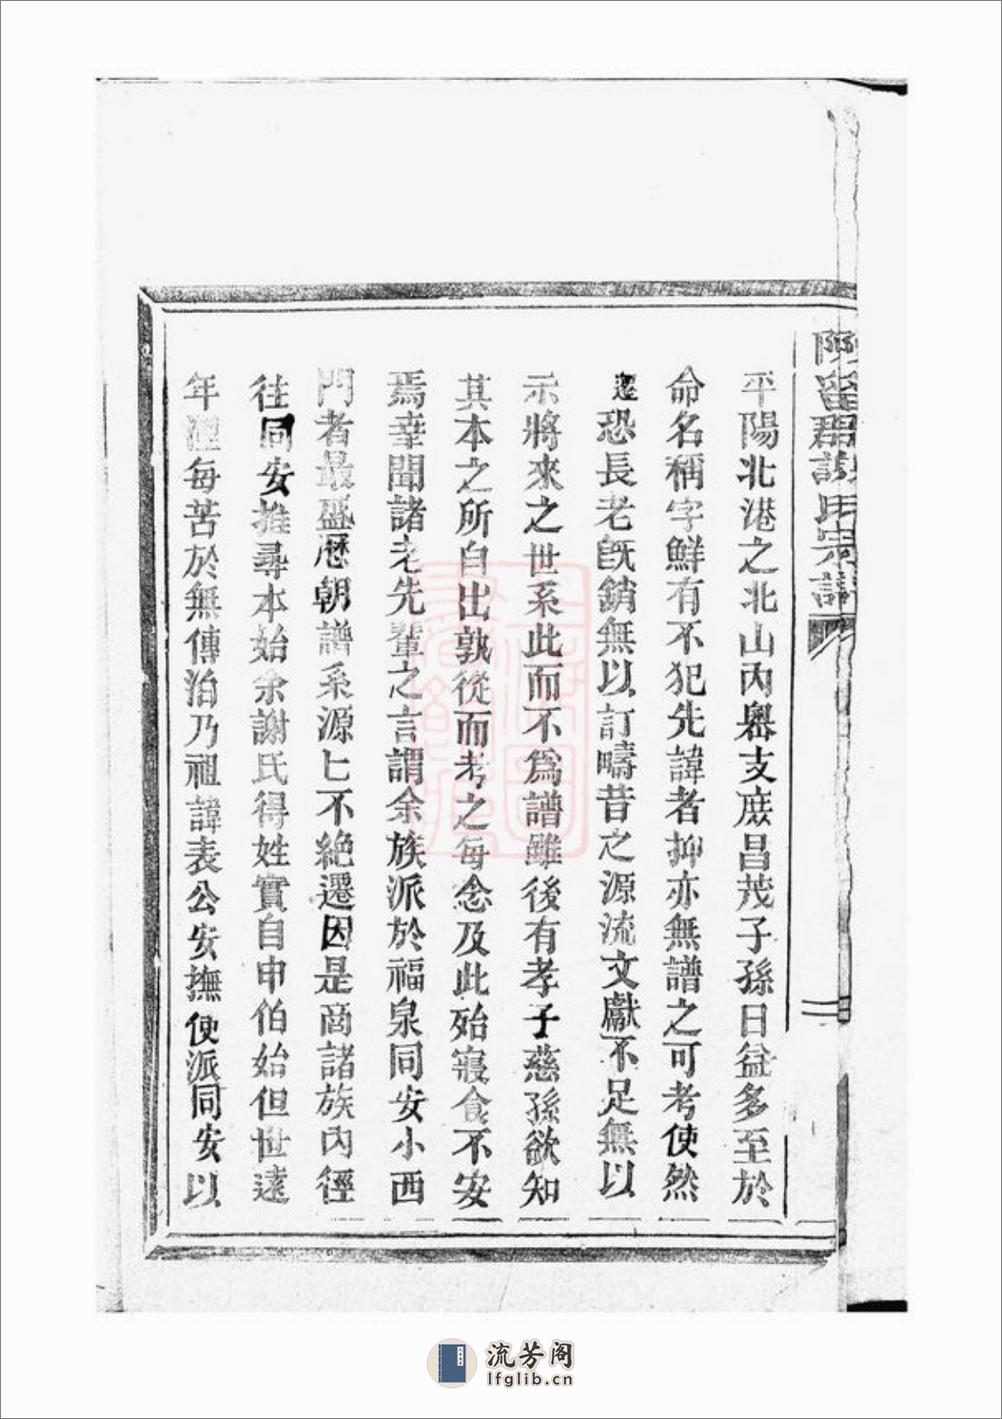 陳留郡謝氏宗譜
平陽北港之北山內粵支庶昌茂子孫日益多至於
命名稱字鮮有不犯先諱者抑亦無譜之可考使然
恐長老旣銷無以訂疇昔之源流文獻不足無以
示將來之世系此而不爲譜雖後有孝子慈孫欲知
其本之所自出孰從而考之每念及此殆寢食不安
焉幸聞諸老先輩之言謂余族派於福泉同安小西
門者最盛歷朝譜系源匕不絕遷因是商諸族內徑
往同安推尋本始余謝氏得姓實自申伯始但世遠
年湮每苦於無傳洎乃祖諱表公安撫使派同安以
流芳阁
lfglib.cn